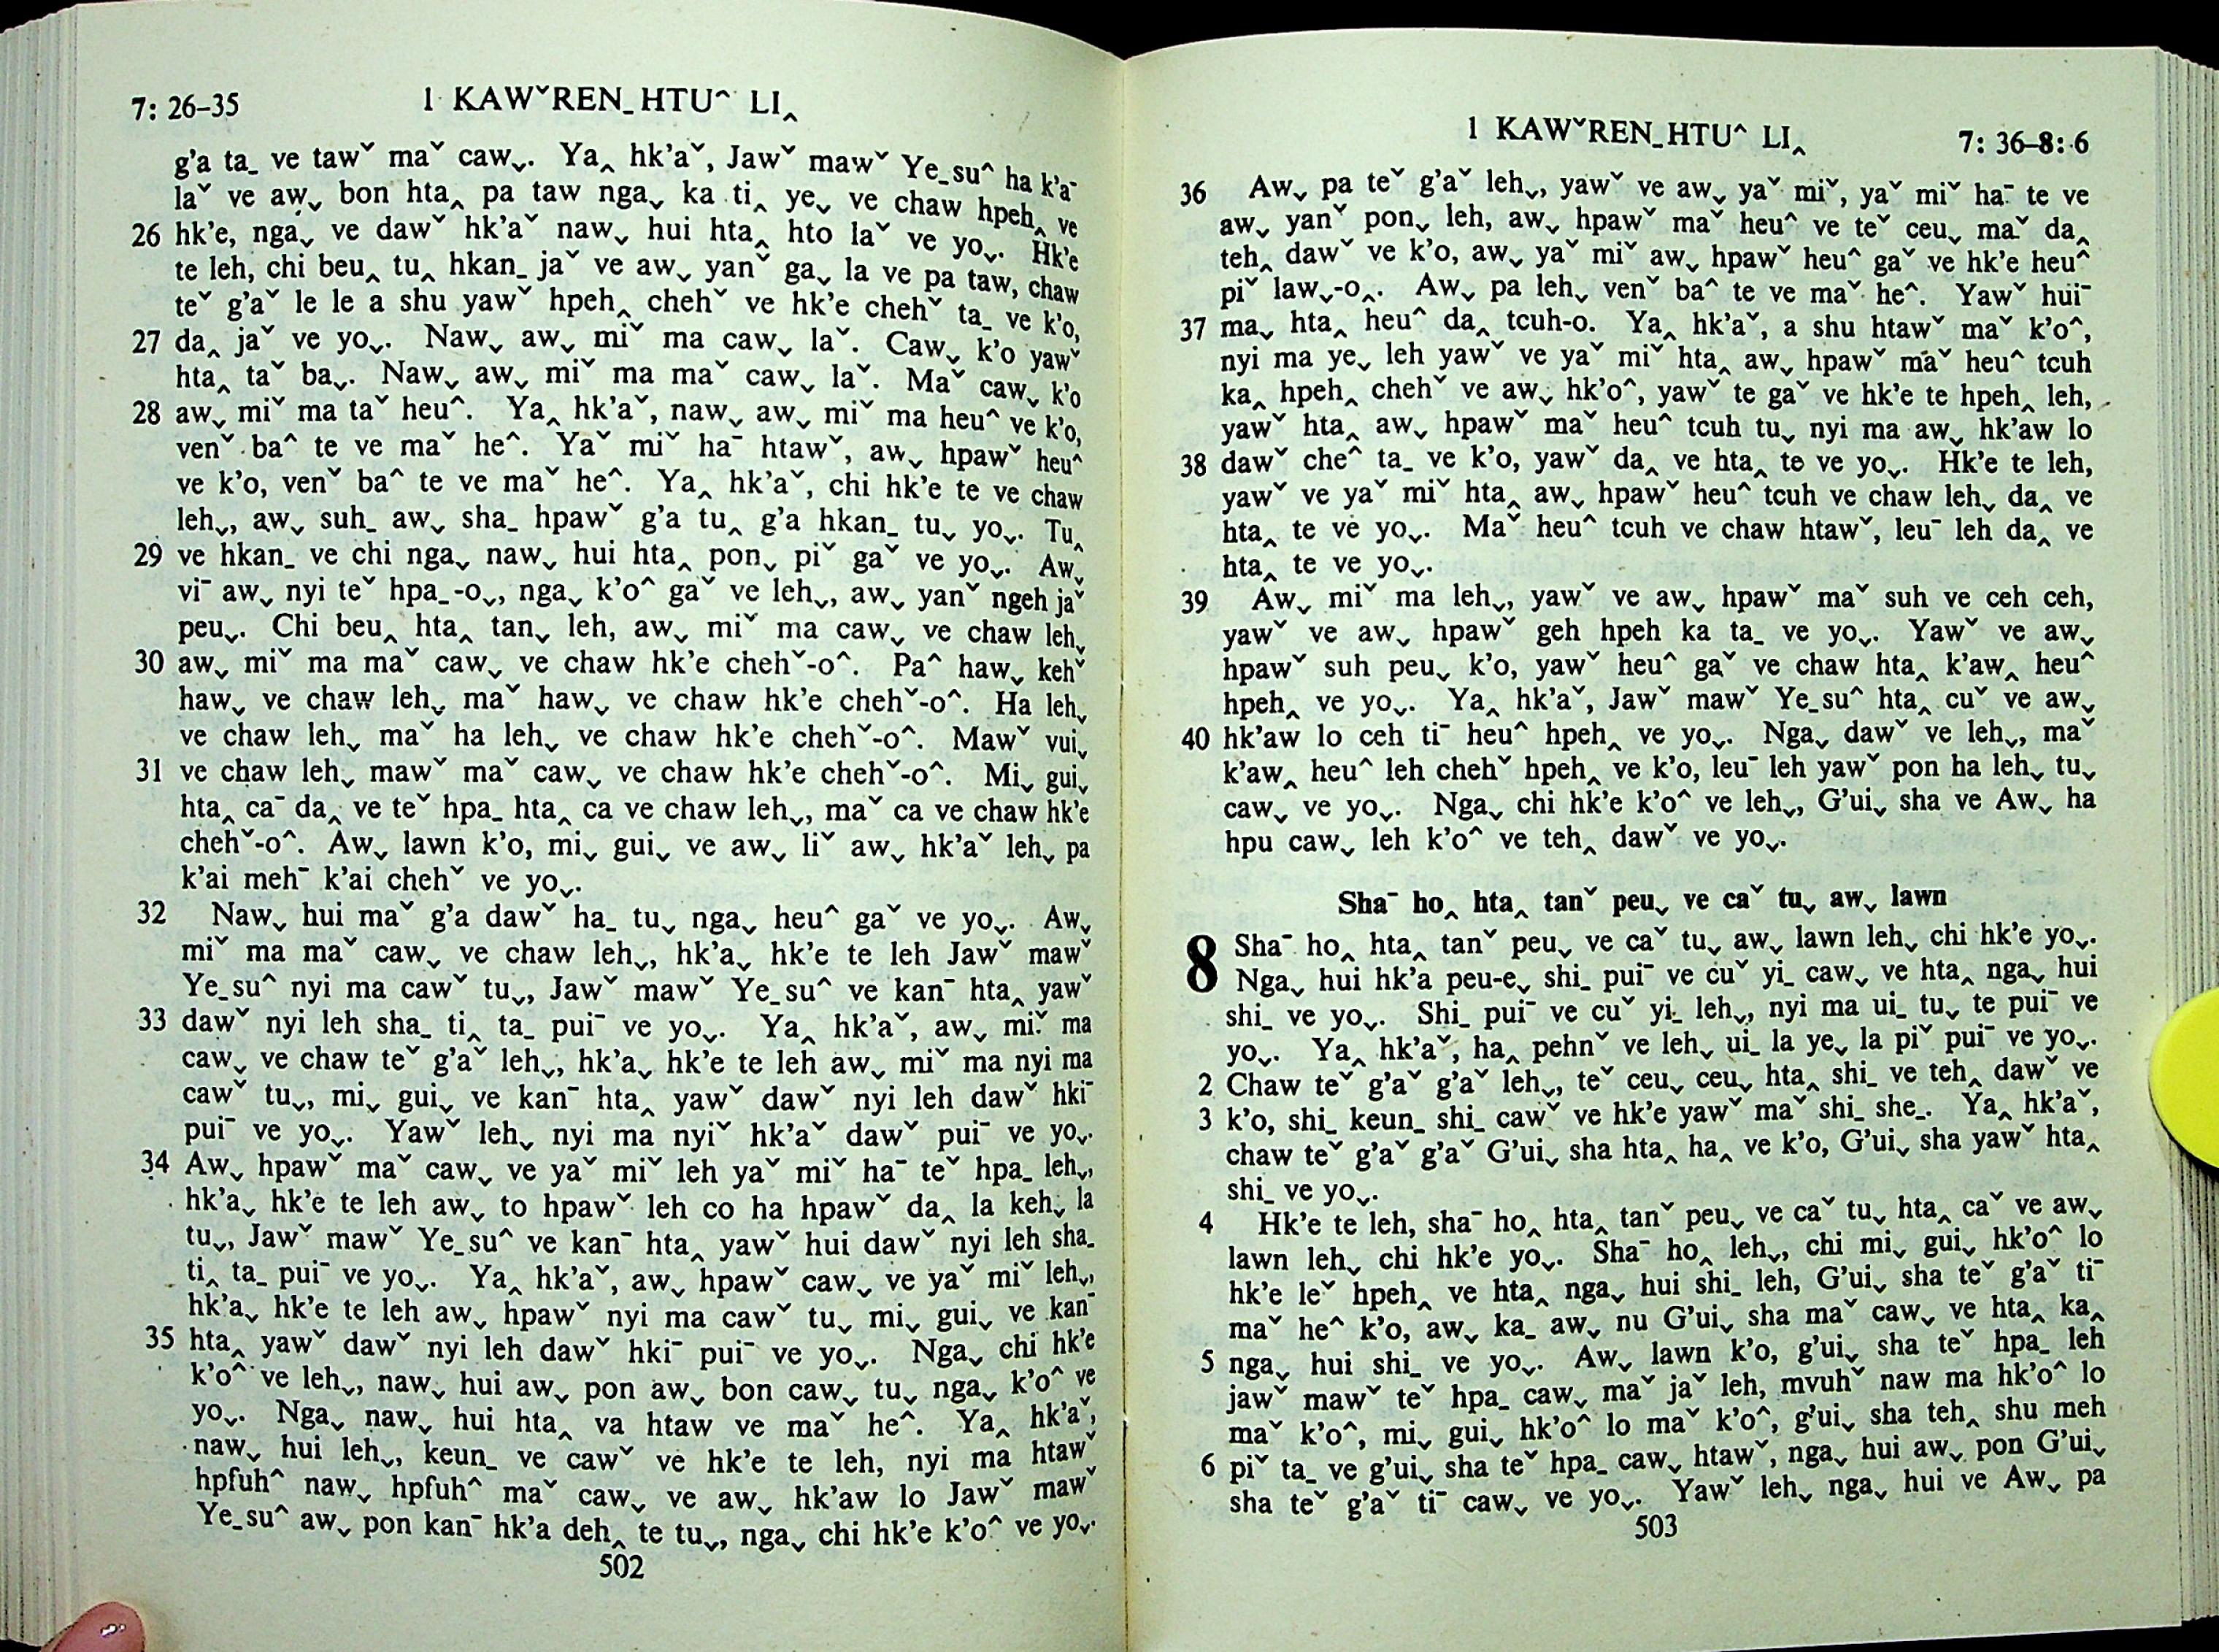 7: 26–35
1 KAWˇREN_HTU^ LI‸
g’a ta_ ve tawˇ maˇ cawˬ. Ya‸ hk’aˇ, Jawˇ mawˇ Ye_su^ ha k’aˉ
laˇ ve awˬ bon hta‸ pa taw ngaˬ ka ti‸ yeˬ ve chaw hpeh‸ ve
26 hk’e, ngaˬ ve dawˇ hk’aˇ nawˬ hui hta‸ hto laˇ ve yoˬ. Hk’e
te leh, chi beu‸ tu‸ hkan_ jaˇ ve awˬ yanˇ gaˬ la ve pa taw, chaw
teˇ g’aˇ le le a shu yawˇ hpeh‸ chehˇ ve hk’e chehˇ ta_ ve k’o,
27 da‸ jaˇ ve yoˬ. Nawˬ awˬ miˇ ma cawˬ laˇ. Cawˬ k’o yawˇ
hta‸ taˇ baˬ. Nawˬ awˬ miˇ ma maˇ cawˬ laˇ. Maˇ cawˬ k’o
28 awˬ miˇ ma taˇ heu^. Ya‸ hk’aˇ, nawˬ awˬ miˇ ma heu^ ve k’o,
venˇ ba^ te ve maˇ he^. Yaˇ miˇ haˉ htawˇ, awˬ hpawˇ heu^
ve k’o, venˇ ba^ te ve maˇ he^. Ya‸ hk’aˇ, chi hk’e te ve chaw
lehˬ, awˬ suh_ awˬ sha_ hpawˇ g’a tu‸ g’a hkan_ tuˬ yoˬ. Tu‸
29 ve hkan_ ve chi ngaˬ nawˬ hui hta‸ ponˬ piˇ gaˇ ve yoˬ. Awˬ
viˉ awˬ nyi teˇ hpa_-oˬ, ngaˬ k’o^ gaˇ ve lehˬ, awˬ yanˇ ngeh jaˇ
peuˬ. Chi beu‸ hta‸ tanˬ leh, awˬ miˇ ma cawˬ ve chaw lehˬ
30 awˬ miˇ ma maˇ cawˬ ve chaw hk’e chehˇ-o^. Pa^ hawˬ kehˇ
hawˬ ve chaw lehˬ maˇ hawˬ ve chaw hk’e chehˇ-o^. Ha lehˬ
ve chaw lehˬ maˇ ha lehˬ ve chaw hk’e chehˇ-o^. Mawˇ vuiˬ
31 ve chaw lehˬ mawˇ maˇ cawˬ ve chaw hk’e chehˇ-o^. Miˬ guiˬ
hta‸ caˉ da‸ ve teˇ hpa_ hta‸ ca ve chaw lehˬ, maˇ ca ve chaw hk’e
chehˇ-o^. Awˬ lawn k’o, miˬ guiˬ ve awˬ liˇ awˬ hk’aˇ lehˬ pa
k’ai mehˉ k’ai chehˇ ve yoˬ.
32 Nawˬ hui maˇ g’a dawˇ ha_ tuˬ ngaˬ heu^ gaˇ ve yoˬ. Awˬ
miˇ ma maˇ cawˬ ve chaw lehˬ, hk’aˬ hk’e te leh Jawˇ mawˇ
Ye_su^ nyi ma cawˇ tuˬ, Jawˇ mawˇ Ye_su^ ve kanˉ hta‸ yawˇ
33 dawˇ nyi leh sha_ ti‸ ta_ puiˉ ve yoˬ. Ya‸ hk’aˇ, awˬ miˇ ma
cawˬ ve chaw teˇ g’aˇ lehˬ, hk’aˬ hk’e te leh awˬ miˇ ma nyi ma
cawˇ tuˬ, miˬ guiˬ ve kanˉ hta‸ yawˇ dawˇ nyi leh dawˇ hkiˉ
puiˉ ve yoˬ. Yawˇ lehˬ nyi ma nyiˇ hk’aˇ dawˇ puiˉ ve yoˬ.
34 Awˬ hpawˇ maˇ cawˬ ve yaˇ miˇ leh yaˇ miˇ haˉ teˇ hpa_ lehˬ,
hk’aˬ hk’e te leh awˬ to hpawˇ leh co ha hpawˇ da‸ la kehˬ la
tuˬ, Jawˇ mawˇ Ye_su^ ve kanˉ hta‸ yawˇ hui dawˇ nyi leh sha_
ti‸ ta_ puiˉ ve yoˬ. Ya‸ hk’aˇ, awˬ hpawˇ cawˬ ve yaˇ miˇ lehˬ,
hk’aˬ hk’e te leh awˬ hpawˇ nyi ma cawˇ tuˬ miˬ guiˬ ve kanˉ
35 hta‸ yawˇ dawˇ nyi leh dawˇ hkiˉ puiˉ ve yoˬ. Ngaˬ chi hk’e
k’o^ ve lehˬ, nawˬ hui awˬ pon awˬ bon cawˬ tuˬ ngaˬ k’o^ ve
yoˬ. Ngaˬ nawˬ hui hta‸ va htaw ve maˇ he^. Ya‸ hk’aˇ,
nawˬ hui lehˬ, keun_ ve cawˇ ve hk’e te leh, nyi ma htawˇ
hpfuh^ nawˬ hpfuh^ maˇ cawˬ ve awˬ hk’aw lo Jawˇ mawˇ
Ye_su^ awˬ pon kanˉ hk’a deh‸ te tuˬ, ngaˬ chi hk’e k’o^ ve yoˬ.
502
1 KAWˇREN_HTU^ LI‸
7: 36–8: 6
36 Awˬ pa teˇ g’aˇ lehˬ, yawˇ ve awˬ yaˇ miˇ, yaˇ miˇ haˉ te ve
awˬ yanˇ ponˬ leh, awˬ hpawˇ maˇ heu^ ve teˇ ceuˬ maˇ da‸
teh‸ dawˇ ve k’o, awˬ yaˇ miˇ awˬ hpawˇ heu^ gaˇ ve hk’e heu^
piˇ lawˬ-o‸. Awˬ pa lehˬ venˇ ba^ te ve maˇ he^. Yawˇ huiˉ
37 maˬ hta‸ heu^ da‸ tcuh-o. Ya‸ hk’aˇ, a shu htawˇ maˇ k’o^,
nyi ma yeˬ leh yawˇ ve yaˇ miˇ hta‸ awˬ hpawˇ maˇ heu^ tcuh
ka‸ hpeh‸ chehˇ ve awˬ hk’o^, yawˇ te gaˇ ve hk’e te hpeh‸ leh,
yawˇ hta‸ awˬ hpawˇ maˇ heu^ tcuh tuˬ nyi ma awˬ hk’aw lo
38 dawˇ che^ ta_ ve k’o, yawˇ da‸ ve hta‸ te ve yoˬ. Hk’e te leh,
yawˇ ve yaˇ miˇ hta‸ awˬ hpawˇ heu^ tcuh ve chaw lehˬ da‸ ve
hta‸ te ve yoˬ. Maˇ heu^ tcuh ve chaw htawˇ, leuˉ leh da‸ ve
hta‸ te ve yoˬ.
39 Awˬ miˇ ma lehˬ, yawˇ ve awˬ hpawˇ maˇ suh ve ceh ceh,
yawˇ ve awˬ hpawˇ geh hpeh ka ta_ ve yoˬ. Yawˇ ve awˬ
hpawˇ suh peuˬ k’o, yawˇ heu^ gaˇ ve chaw hta‸ k’aw‸ heu^
hpeh‸ ve yoˬ. Ya‸ hk’aˇ, Jawˇ mawˇ Ye_su^ hta‸ cuˇ ve awˬ
40 hk’aw lo ceh tiˉ heu^ hpeh‸ ve yoˬ. Ngaˬ dawˇ ve lehˬ, maˇ
k’aw‸ heu^ leh chehˇ hpeh‸ ve k’o, leuˉ leh yawˇ pon ha lehˬ tuˬ
cawˬ ve yoˬ. Ngaˬ chi hk’e k’o^ ve lehˬ, G’uiˬ sha ve Awˬ ha
hpu cawˬ leh k’o^ ve teh‸ dawˇ ve yoˬ.
Shaˉ ho‸ hta‸ tanˇ peuˬ ve caˇ tuˬ awˬ lawn
8 Shaˉ ho‸ hta‸ tanˇ peuˬ ve caˇ tuˬ awˬ lawn lehˬ chi hk’e yoˬ.
Ngaˬ hui hk’a peu-eˬ shi_ puiˉ ve cuˇ yi_ cawˬ ve hta‸ ngaˬ hui
shi_ ve yoˬ. Shi_ puiˉ ve cuˇ yi_ lehˬ, nyi ma ui_ tuˬ te puiˉ ve
yoˬ. Ya‸ hk’aˇ, ha‸ pehnˇ ve lehˬ ui_ la yeˬ la piˇ puiˉ ve yoˬ.
2 Chaw teˇ g’aˇ g’aˇ lehˬ, teˇ ceuˬ ceuˬ hta‸ shi_ ve teh‸ dawˇ ve
3 k’o, shi_ keun_ shi_ cawˇ ve hk’e yawˇ maˇ shi_ she_. Ya‸ hk’aˇ,
chaw teˇ g’aˇ g’aˇ G’uiˬ sha hta‸ ha‸ ve k’o, G’uiˬ sha yawˇ hta‸
shi_ ve yoˬ.
4 Hk’e te leh, shaˉ ho‸ hta‸ tanˇ peuˬ ve caˇ tuˬ hta‸ caˇ ve awˬ
lawn lehˬ chi hk’e yoˬ. Shaˉ ho‸ lehˬ, chi miˬ guiˬ hk’o^ lo
hk’e leˇ hpeh‸ ve hta‸ ngaˬ hui shi_ leh, G’uiˬ sha teˇ g’aˇ tiˉ
maˇ he^ k’o, awˬ ka_ awˬ nu G’uiˬ sha maˇ cawˬ ve hta‸ ka‸
5 ngaˬ hui shi_ ve yoˬ. Awˬ lawn k’o, g’uiˬ sha teˇ hpa_ leh
jawˇ mawˇ teˇ hpa_ cawˬ maˇ jaˇ leh, mvuhˇ naw ma hk’o^ lo
maˇ k’o^, miˬ guiˬ hk’o^ lo maˇ k’o^, g’uiˬ sha teh‸ shu meh
6 piˇ ta_ ve g’uiˬ sha teˇ hpa_ cawˬ htawˇ, ngaˬ hui awˬ pon G’uiˬ
sha teˇ g’aˇ tiˉ cawˬ ve yoˬ. Yawˇ lehˬ ngaˬ hui ve Awˬ pa
503